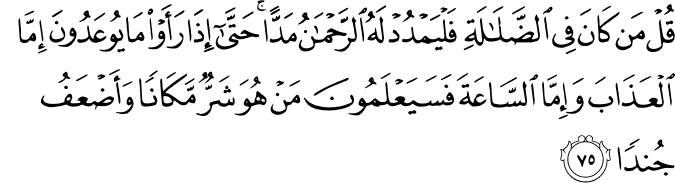 قُلۡ مَن كَانَ فِي ٱلضَّلَٰلَةِ فَلۡيَمۡدُدۡ لَهُ ٱلرَّحۡمَٰنُ مَدًّاۚ حَتَّىٰٓ إِذَا رَأَوۡاْ مَا يُوعَدُونَ إِمَّا
ٱلۡعَذَابَ وَإِمَّا ٱلسَّاعَةَ فَسَيَعۡلَمُونَ مَنۡ هُوَ شَرّٞ مَّكَانٗا وَأَضۡعَفُ
جُندٗا ٧٥